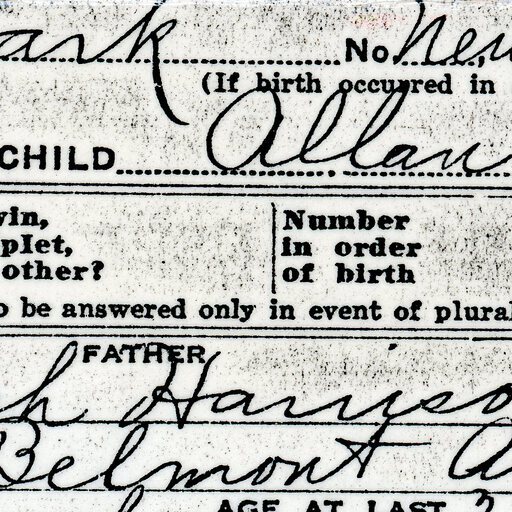 ark No. New
(If birth occurred in
CHILD Allan
win,
plet,
other?
Number
in order
of birth
o be answered only in event of plural
FATHER
h Harriso
Belmont A
AGE AT LAST